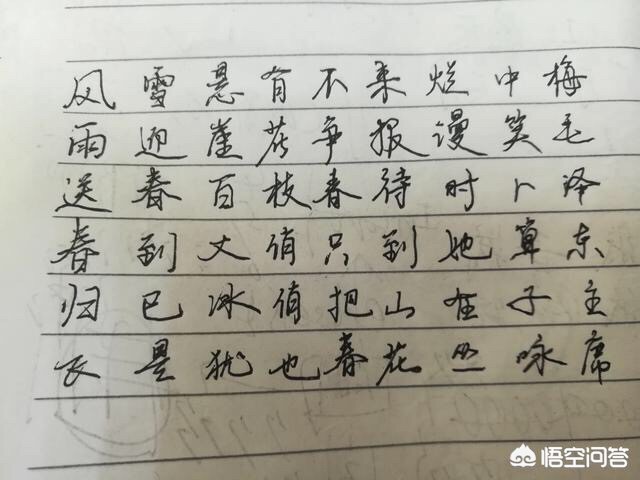 风雨送春归飞
雪迎春到已是
悬崖百丈冰犹
有花枝俏俏也
不争春只把春
来报待到山花
烂漫时她在丛
中笑卜算子咏
梅毛泽东主席
悟空问答